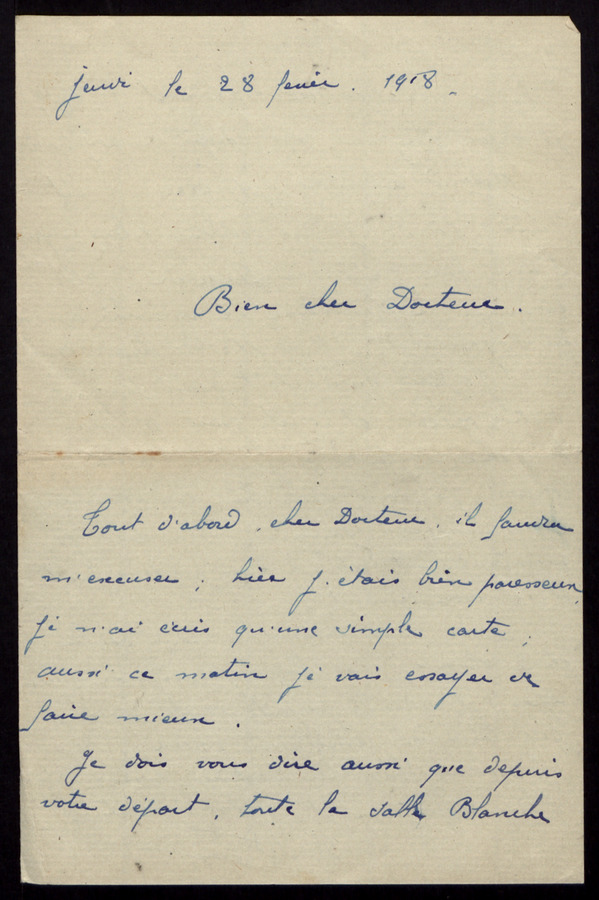 jeudi le 28 fevier. 1918.
Bien cher Docteur.
Tout d'abord, cher Docteur, il faudra
m'excuser; hier j'étais bien paresseux
je n'ai écris qu'une simple carte;
aussi ce matin je vais essayer de
faire mieux.
Je dois vous dire aussi que depuis
votre départ, toute la salle Blanche